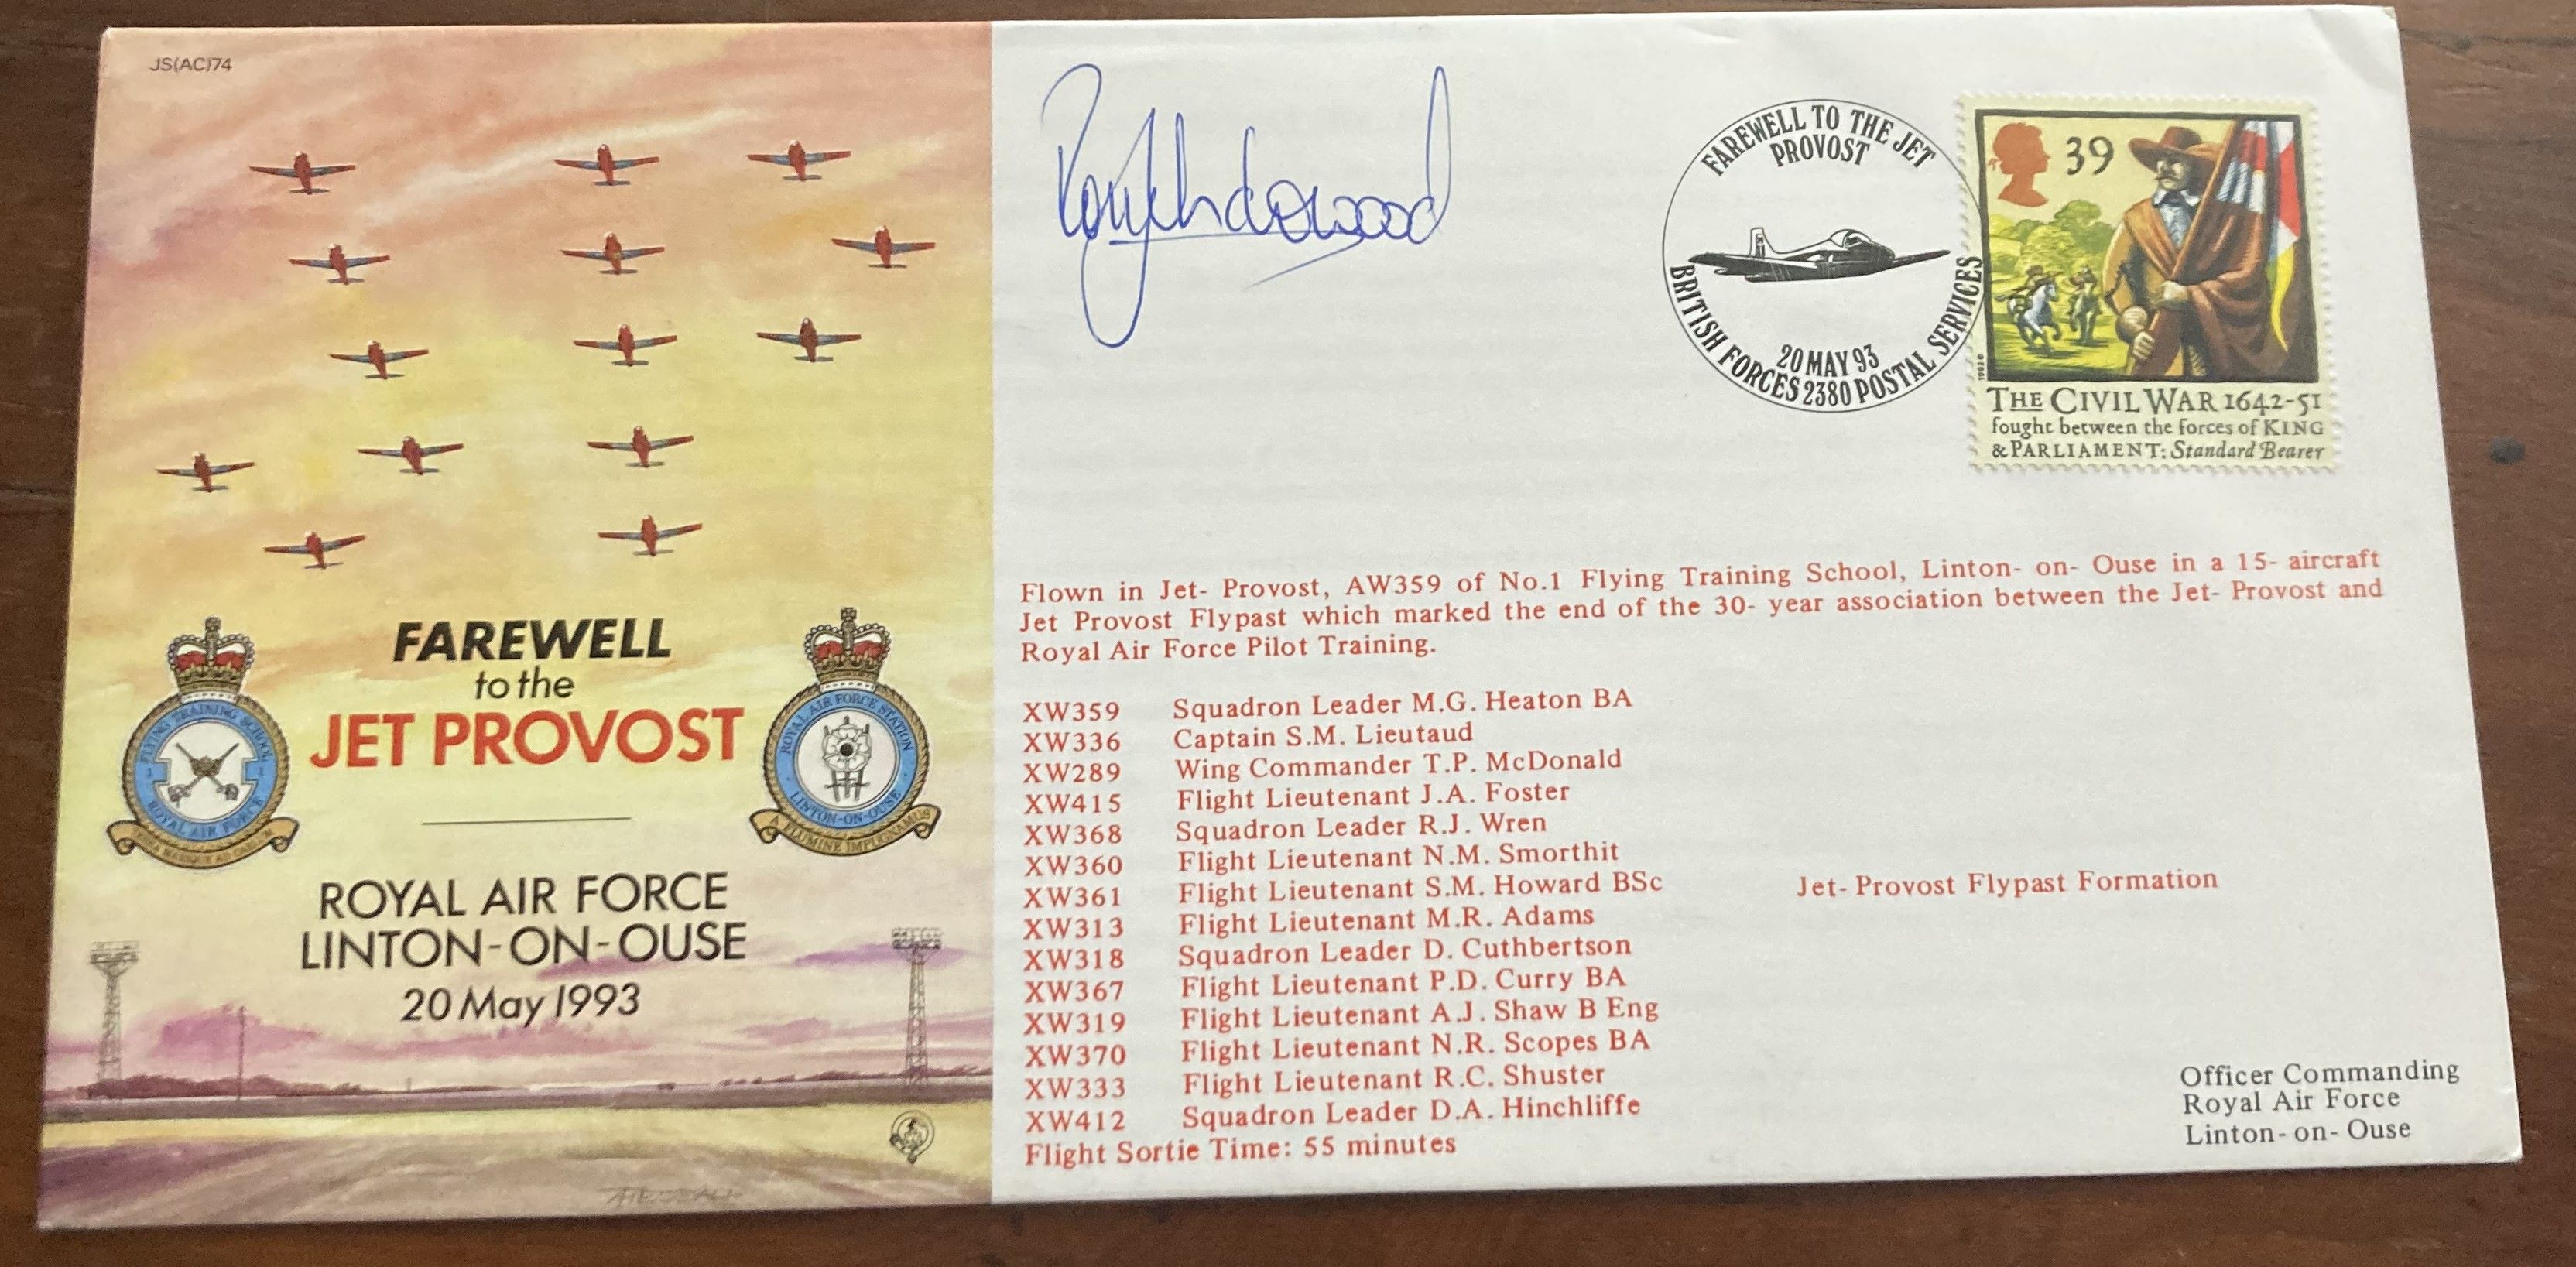 JS(AC)74
FAREWELL
to the
JET PROVOST
FLYING TRAINING SCHOOL
1 1
ROYAL AIR FORCE
TERRA MARIQUE AD CAELUM
ROYAL AIR FORCE STATION
LINTON-ON-OUSE
A FLUMINE IMPUGNAMUS
ROYAL AIR FORCE
LINTON-ON-OUSE
20 May 1993
FAREWELL TO THE JET
PROVOST
20 MAY 93
BRITISH FORCES 2380 POSTAL SERVICES
39
THE CIVIL WAR 1642-51
fought between the forces of KING
& PARLIAMENT: Standard Bearer
Flown in Jet- Provost, AW359 of No.1 Flying Training School, Linton- on- Ouse in a 15- aircraft
Jet Provost Flypast which marked the end of the 30- year association between the Jet- Provost and
Royal Air Force Pilot Training.
XW359 Squadron Leader M.G. Heaton BA
XW336 Captain S.M. Lieutaud
XW289 Wing Commander T.P. McDonald
XW415 Flight Lieutenant J.A. Foster
XW368 Squadron Leader R.J. Wren
XW360 Flight Lieutenant N.M. Smorthit
XW361 Flight Lieutenant S.M. Howard BSc Jet- Provost Flypast Formation
XW313 Flight Lieutenant M.R. Adams
XW318 Squadron Leader D. Cuthbertson
XW367 Flight Lieutenant P.D. Curry BA
XW319 Flight Lieutenant A.J. Shaw B Eng
XW370 Flight Lieutenant N.R. Scopes BA
XW333 Flight Lieutenant R.C. Shuster
XW412 Squadron Leader D.A. Hinchliffe
Flight Sortie Time: 55 minutes
Officer Commanding
Royal Air Force
Linton- on- Ouse